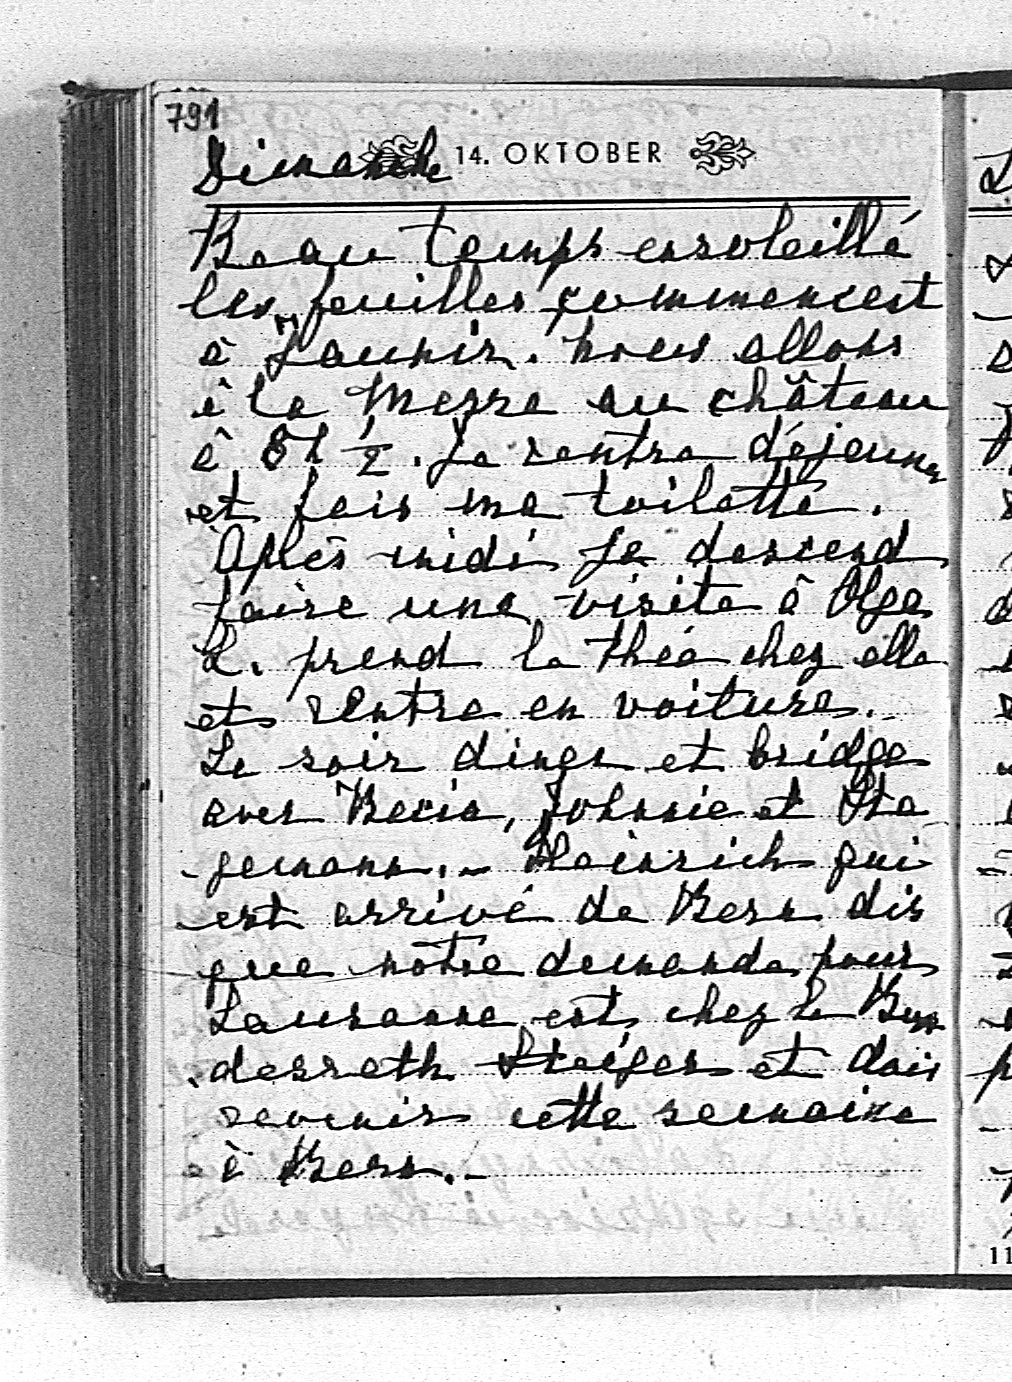 791
Dimanche 14. OKTOBER
Beau temps ensoleillé
les feuilles commencent
à jaunir. Nous allons
à la Messe au château
à 8h ½. Je rentre déjeuner
et fais ma toilette.
Après midi je descend
faire une visite à Olga
L. prend le thé chez elle
et rentre en voiture.
Le soir diner et bridge
avec Beria, Johnnie et Sta
gemann. - Heinrich qui
est arrivé de Bern dis
que notre demande pour
Lausanne est chez le Bun
desrath Steiger et dois
revenir cette semaine
à Bern. -
11